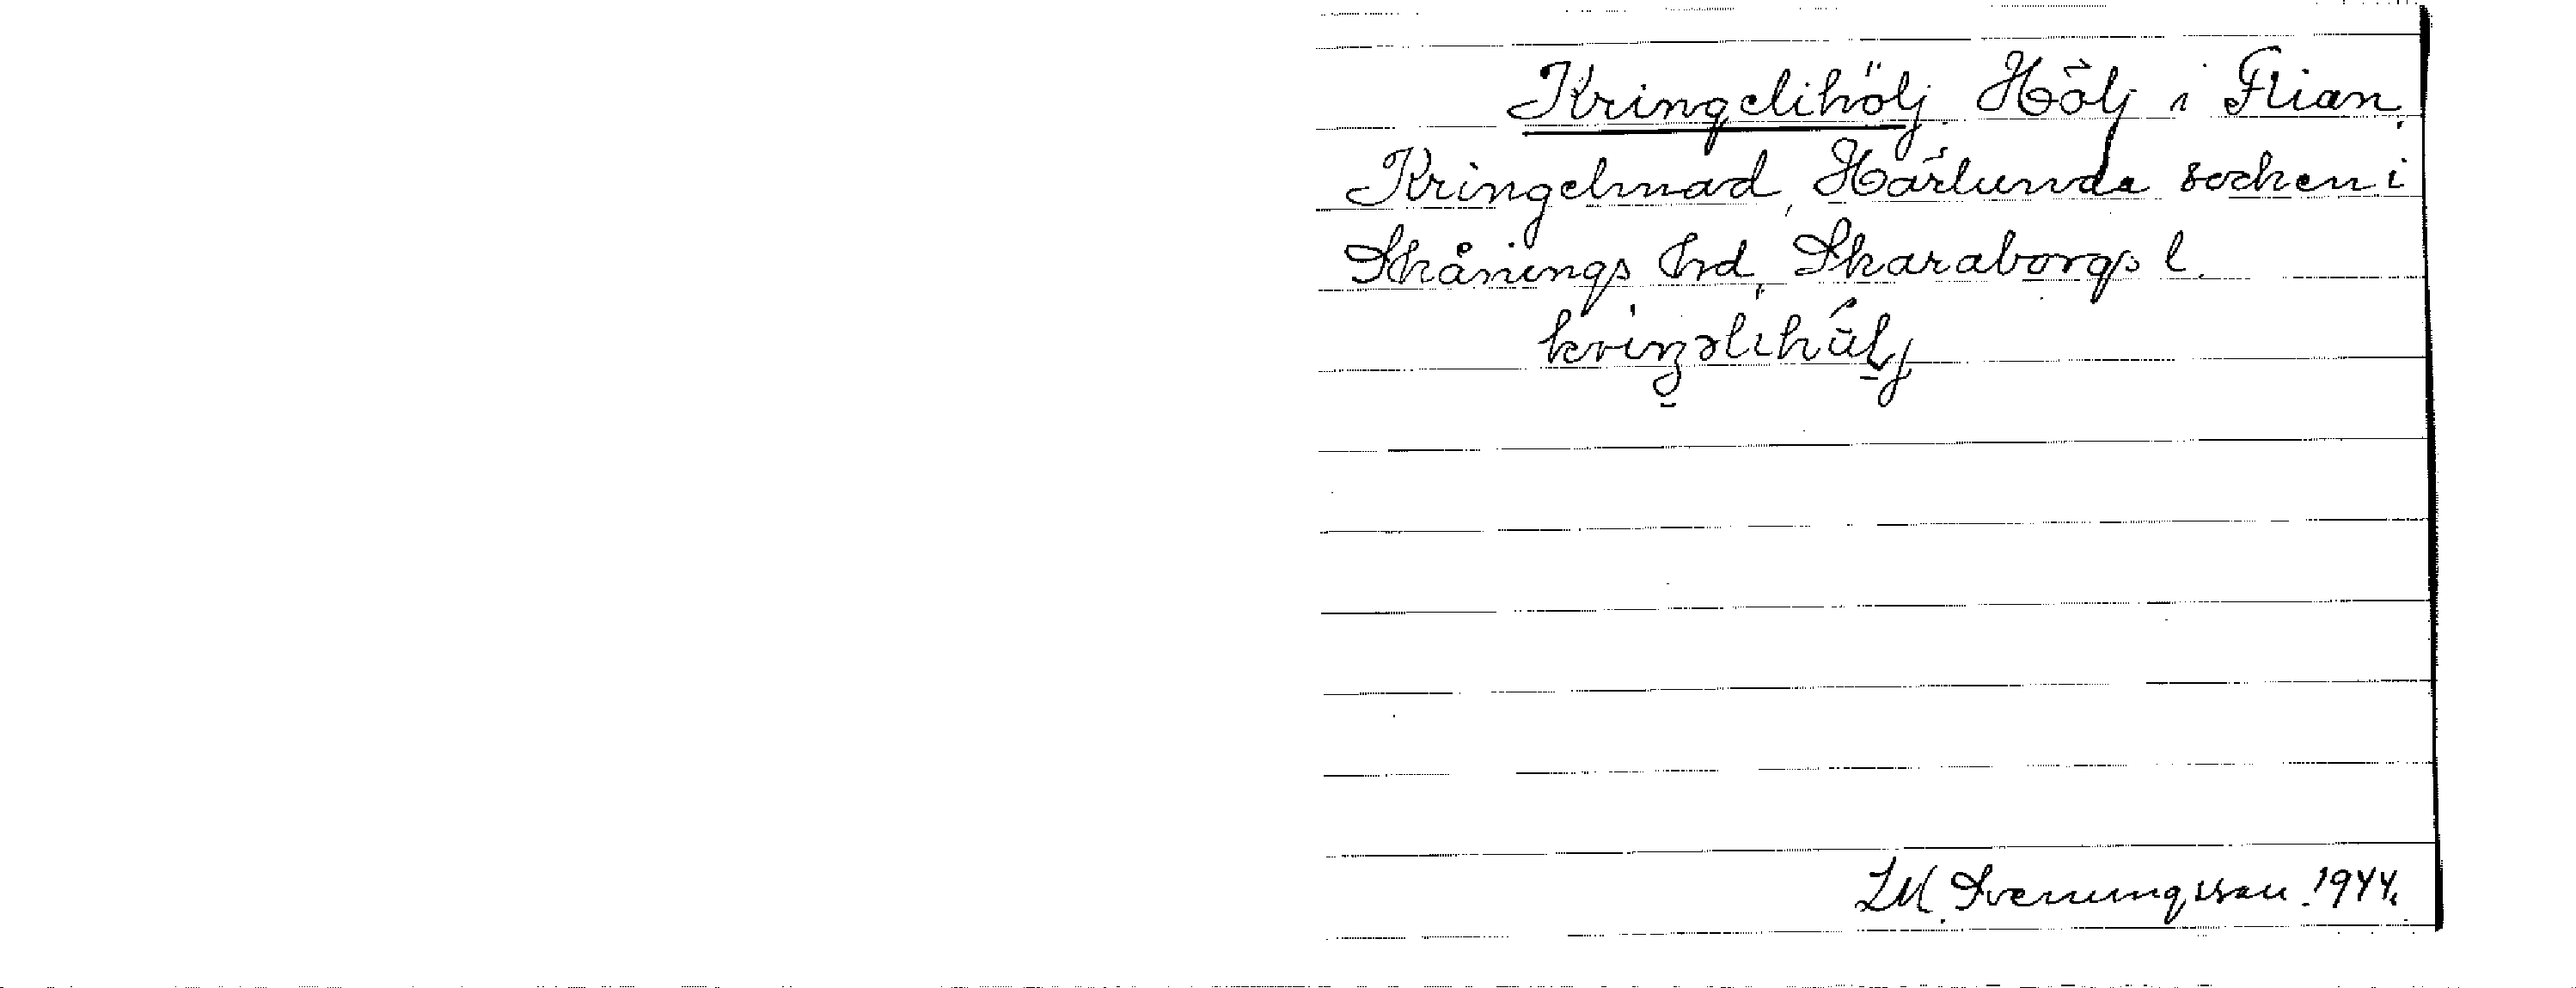 Kringelihölj. Hölj i Flian,
Kringelmad, Härlunda socken i
Skånings hd, Skaraborgs l.
kriŋəlihúlj
LM Svenungsson. 1944.